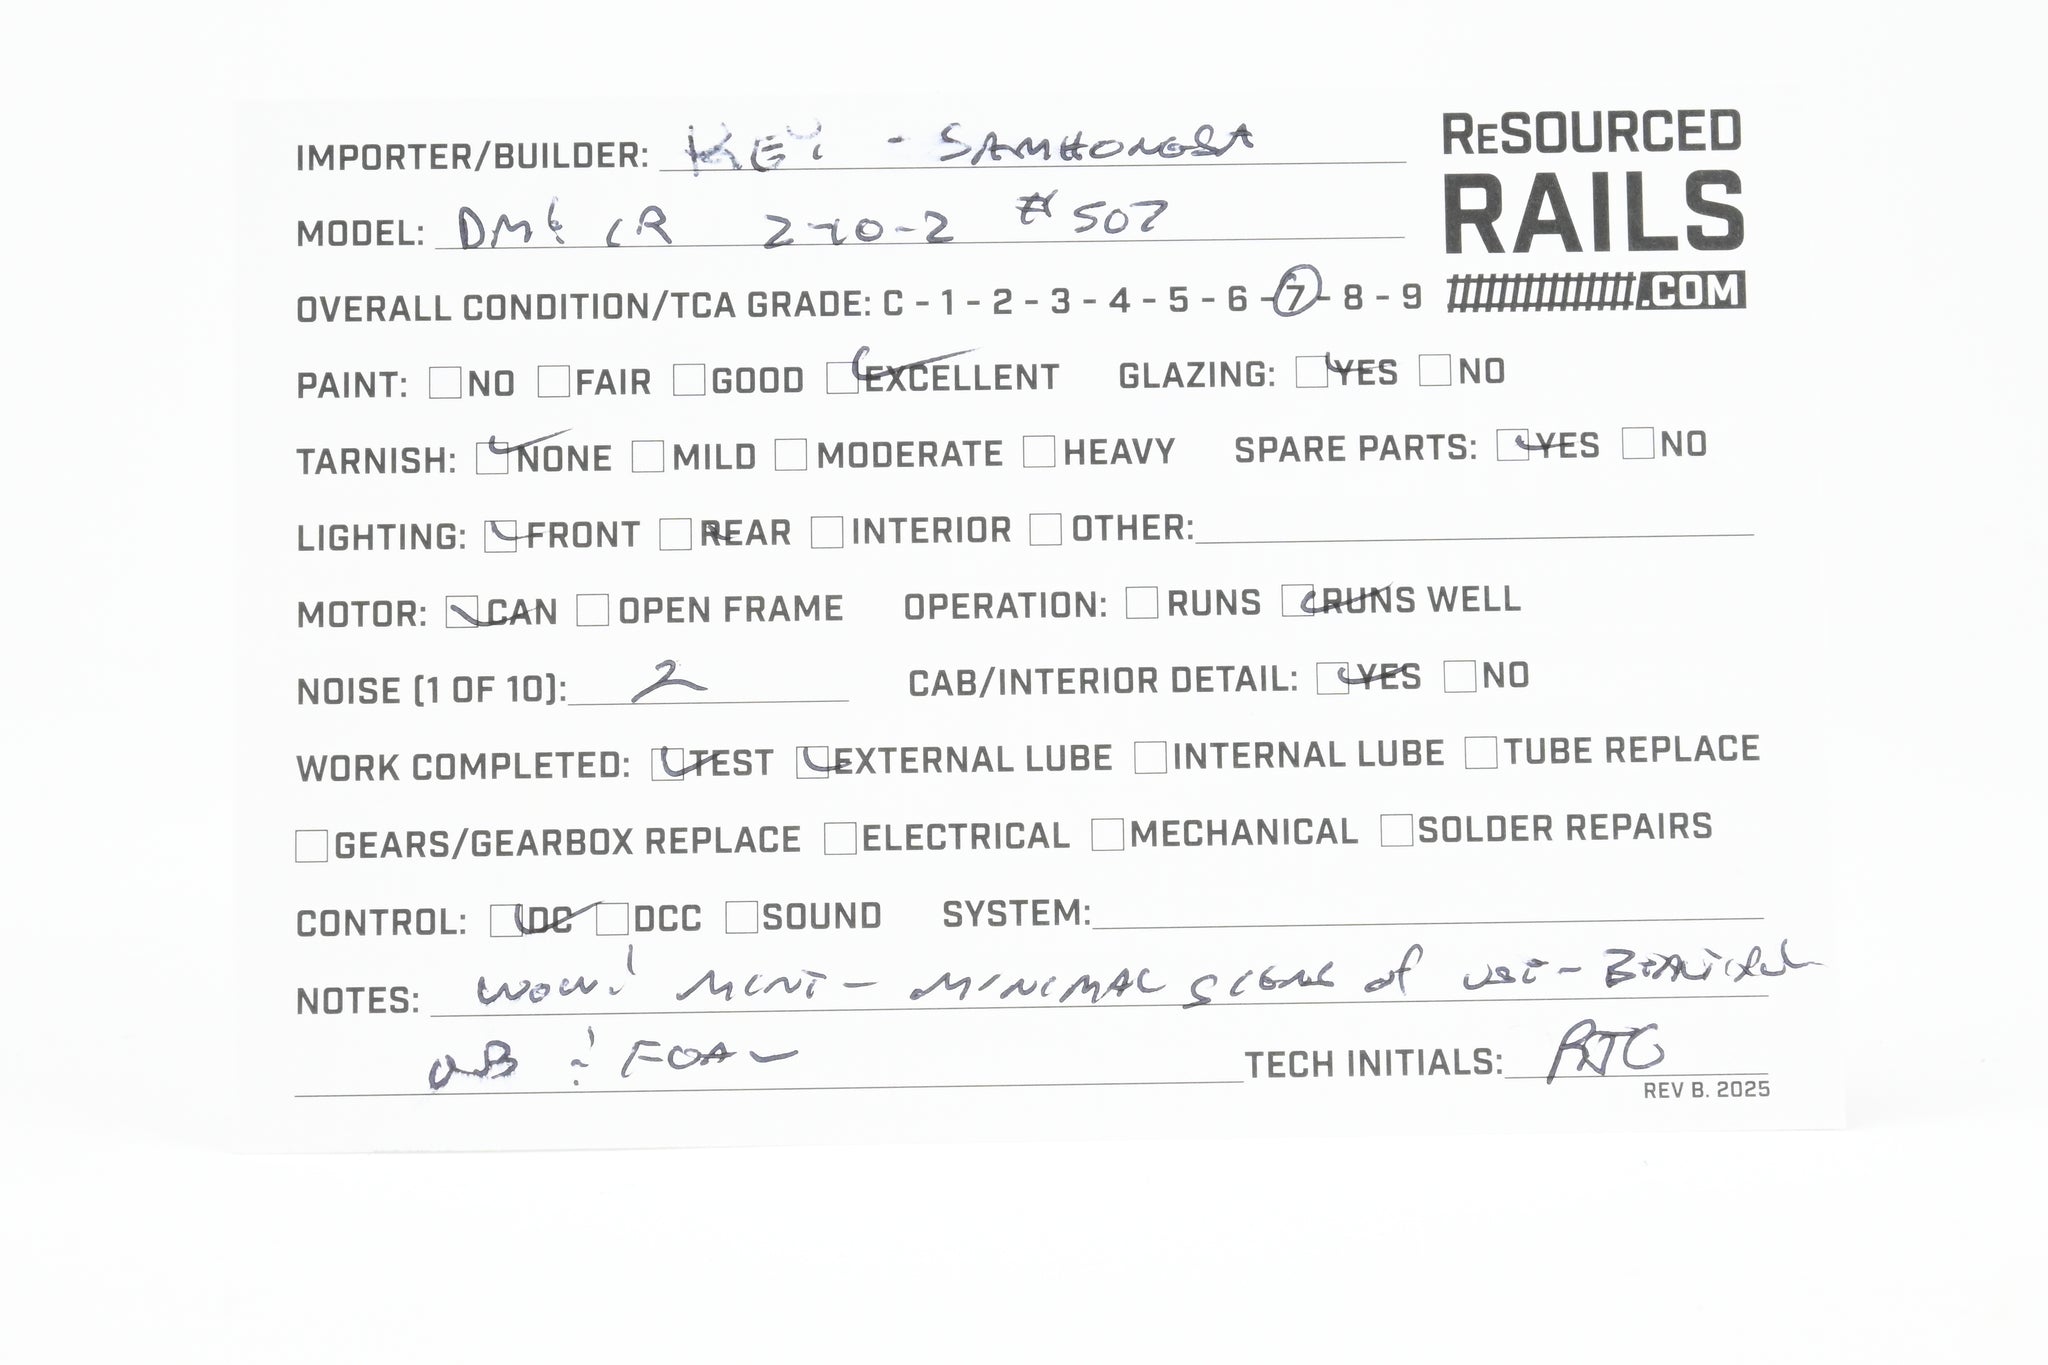 IMPORTER/BUILDER: KEY - SAMHONGSA
RESOURCED
RAILS
.COM
MODEL: DM& IR 2-10-2 #507
OVERALL CONDITION/TCA GRADE: C - 1 - 2 - 3 - 4 - 5 - 6 - 7 - 8 - 9
PAINT: NO FAIR GOOD EXCELLENT GLAZING: YES NO
TARNISH: NONE MILD MODERATE HEAVY SPARE PARTS: YES NO
LIGHTING: FRONT REAR INTERIOR OTHER:
MOTOR: CAN OPEN FRAME OPERATION: RUNS RUNS WELL
NOISE (1 OF 10): 2 CAB/INTERIOR DETAIL: YES NO
WORK COMPLETED: TEST EXTERNAL LUBE INTERNAL LUBE TUBE REPLACE
GEARS/GEARBOX REPLACE ELECTRICAL MECHANICAL SOLDER REPAIRS
CONTROL: DC DCC SOUND SYSTEM:
NOTES: WOW! MINT - MINIMAL SIGNS of USE - BEAUTIFUL
OB & FOAM
TECH INITIALS: RTC
REV B. 2025